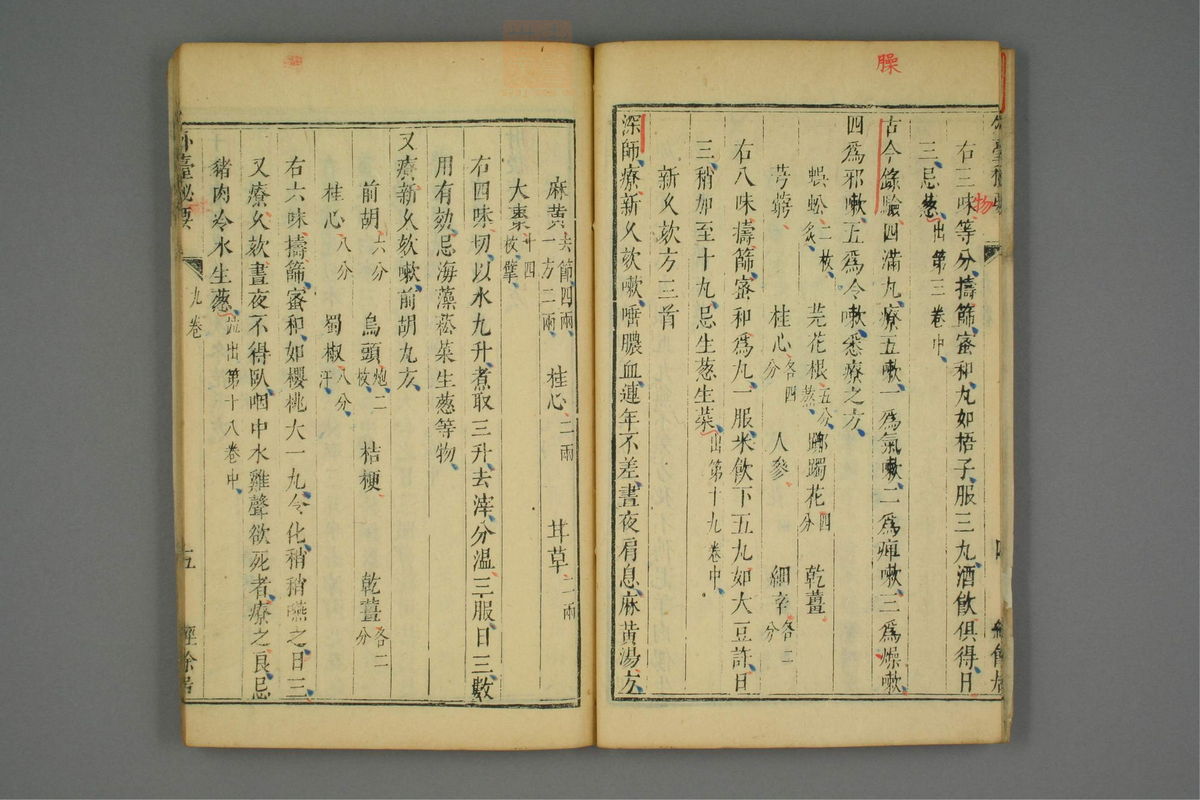 臊
物
右三味等分擣篩蜜和丸如梧子服三丸酒飲俱得日
三忌葱出第三卷中
古今錄驗四滿丸療五嗽一爲氣嗽二爲痺嗽三爲燥嗽
四爲邪嗽五爲冷嗽悉療之方
蜈蚣二枚炙 芫花根五分熬 躑躅花四分 乾薑
芎藭 桂心各四分 人參 細辛各二分
右八味擣篩蜜和爲丸一服米飲下五丸如大豆許日
三稍加至十丸忌生葱生菜出第十九卷中
新久欬方三首
深師療新久欬嗽唾膿血連年不差晝夜肩息麻黃湯方
麻黃去節四兩一方二兩 桂心二兩 甘草二兩
大棗十四枚擘
右四味切以水九升煮取三升去滓分溫三服日三數
用有効忌海藻菘菜生葱等物
又療新久欬嗽前胡丸方
前胡六分 烏頭炮二枚 桔梗 乾薑各二分
桂心八分 蜀椒八分汗
右六味擣篩蜜和如櫻桃大一丸令化稍稍嚥之日三
又療久欬晝夜不得臥咽中水雞聲欲死者療之良忌
豬肉冷水生葱並出第十八卷中
外臺秘要 九卷 五 經餘居